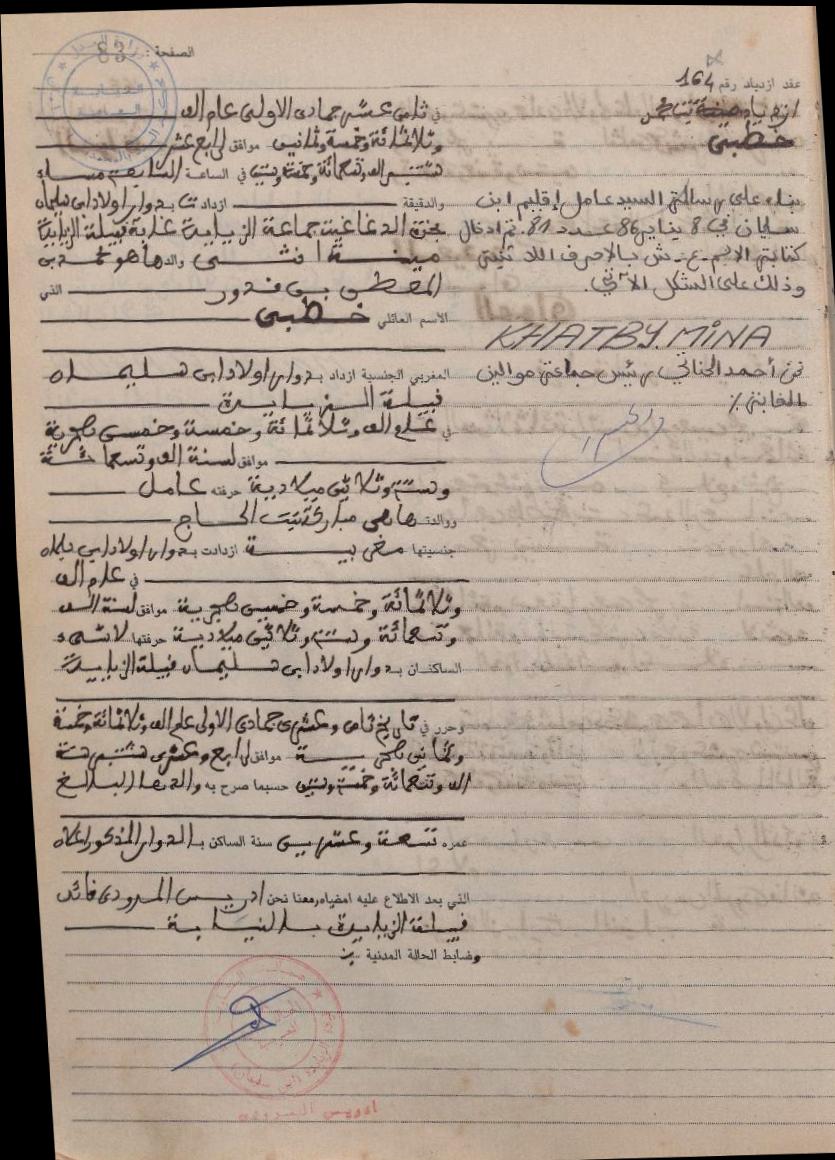 الصفحة : 83
عقد ازدياد رقم 164
ازدياد
خطبي
بناء على رسالة السيد عامل إقليم ابن
سليمان في 8 يناير 86 عدد 81 تم ادخال
كتابة الاسم ع.ش بالاحرف اللاتينية
وذلك على الشكل الآتي.
KHATBY MINA
نحن أحمد الحناني رئيس جماعة موالين
الغابة ٪
في ثاني عشر جمادى الاولى عام الف
وثلاثمائة وخمسة وثمانين موافق لرابع عشر
شتنبر الف وتسعمائة وخمسة وستين في الساعة السابعة مساء
والدقيقة ازدادت بدوار اولاد ابي سليمان
جماعة الزيايدة عمالة قبيلة الزيايدة
مينة انثى والدها هو محمد بن
المعطي بن قدور الذي
الاسم العائلي خطبي
المغربي الجنسية ازداد بدوار اولاد ابي سليمان
قبيلة الزيايدة
في عام الف وثلاثمائة وخمسة وخمسين هجرية
موافق لسنة الف وتسعمائة
وستة وثلاثين ميلادية حرفته عامل
ووالدتها هي مباركة بنت الحاج
جنسيتها مغربية ازدادت بدوار اولاد ابي سليمان
في عام الف
وثلاثمائة وخمسة وخمسين هجرية موافق لسنة الف
وتسعمائة وستة وثلاثين ميلادية حرفتها لا شيء
الساكنان بدوار اولاد ابي سليمان قبيلة الزيايدة
وحرر في تاريخ ثاني وعشري جمادى الاولى عام الف وثلاثمائة وخمسة
وثمانين هجرية موافق لرابع وعشري شتنبر سنة
الف وتسعمائة وخمسة وستين حسبما صرح به والدها البالغ
عمره تسعة وعشرين سنة الساكن بالدوار المذكور اعلاه
الذي بعد الاطلاع عليه امضياه معنا نحن ادريس المرودي قائد
قبيلة الزيايدة بالنيابة
وضابط الحالة المدنية